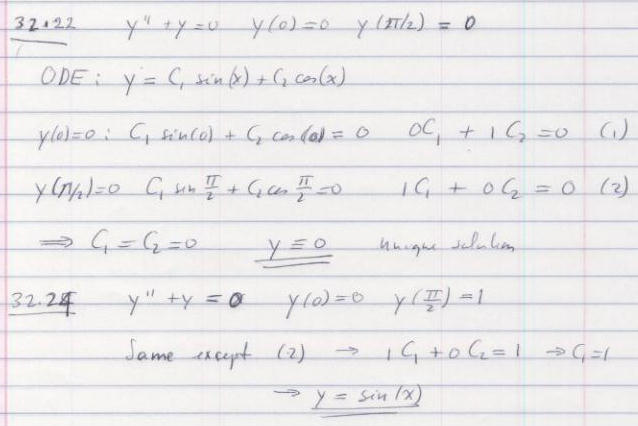 32.22 y'' + y = 0 y(0) = 0 y(π/2) = 0
ODE: y = C₁ sin(x) + C₂ cos(x)
y(0)=0: C₁ sin(0) + C₂ cos(0) = 0 0C₁ + 1C₂ = 0 (1)
y(π/2)=0 C₁ sin π/2 + C₂ cos π/2 = 0 1C₁ + 0C₂ = 0 (2)
⇒ C₁ = C₂ = 0 y ≡ 0 unique solution
32.24 y'' + y = 0 y(0) = 0 y(π/2) = 1
Same except (2) → 1C₁ + 0C₂ = 1 → C₁ = 1
→ y = sin(x)